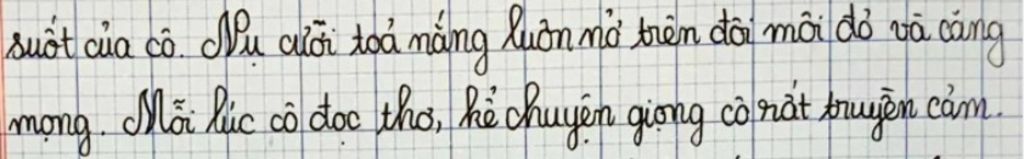 suốt của cô. Nụ cười toả nắng luôn nở trên đôi môi đỏ và căng
mọng. Mỗi lúc cô đọc thơ, kể chuyện giọng cô rất truyền cảm.